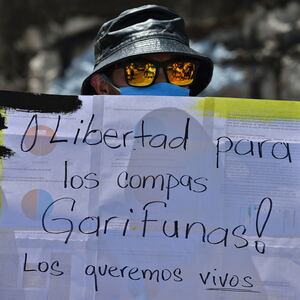 ¡Libertad para
los compas
Garifunas!
Los queremos vivos